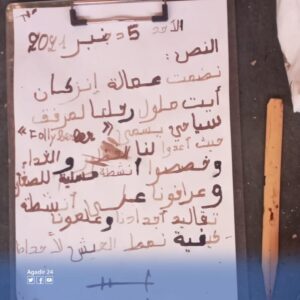 الأحد 5 دجنبر 2021
النص:
نضمت عمالة إنزكان
أيت ملول رحلة لمرفق
سياحي يسمى
« Folly
حيث أعدوا لنا والغداء
وخصصوا أنشطة مسلية للصغار
وعرافونا على أنشطة
تقاليد أجدادنا وعلمونا
كيفية نمط العيش لأجدادنا
Agadir 24